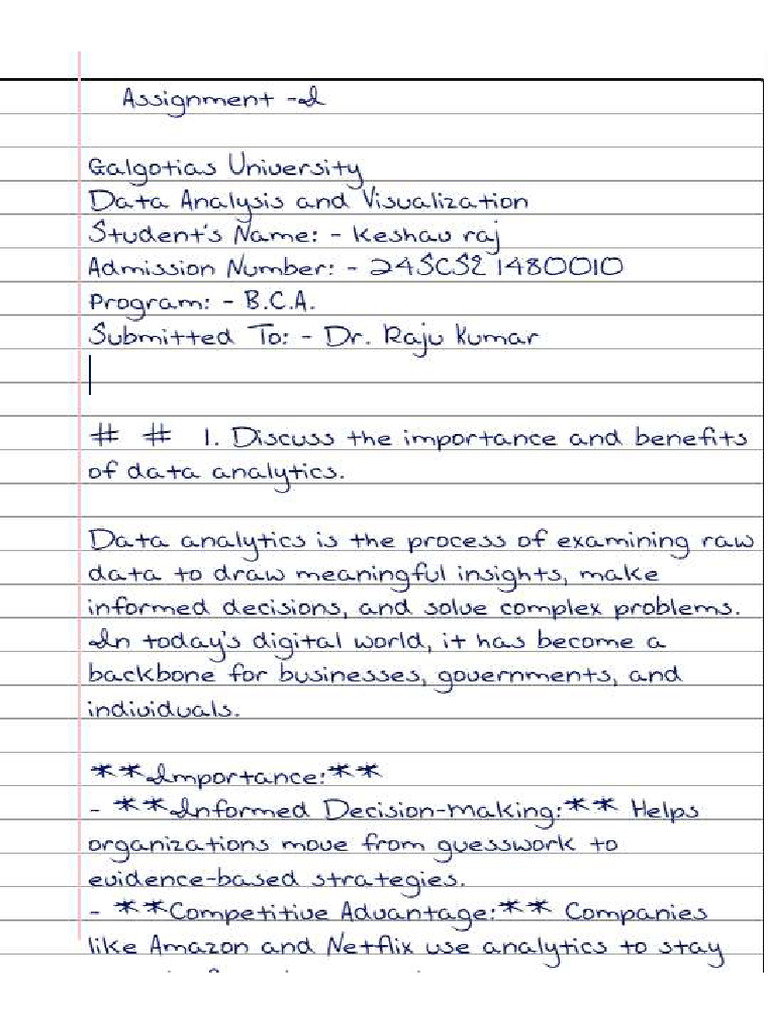 Assignment -I
Galgotias University
Data Analysis and Visualization
Student's Name: - Keshav raj
Admission Number: - 24SCSE1480010
Program: - B.C.A.
Submitted To: - Dr. Raju Kumar
# # 1. Discuss the importance and benefits
of data analytics.
Data analytics is the process of examining raw
data to draw meaningful insights, make
informed decisions, and solve complex problems.
In today's digital world, it has become a
backbone for businesses, governments, and
individuals.
**Importance:**
- **Informed Decision-making:** Helps
organizations move from guesswork to
evidence-based strategies.
- **Competitive Advantage:** Companies
like Amazon and Netflix use analytics to stay